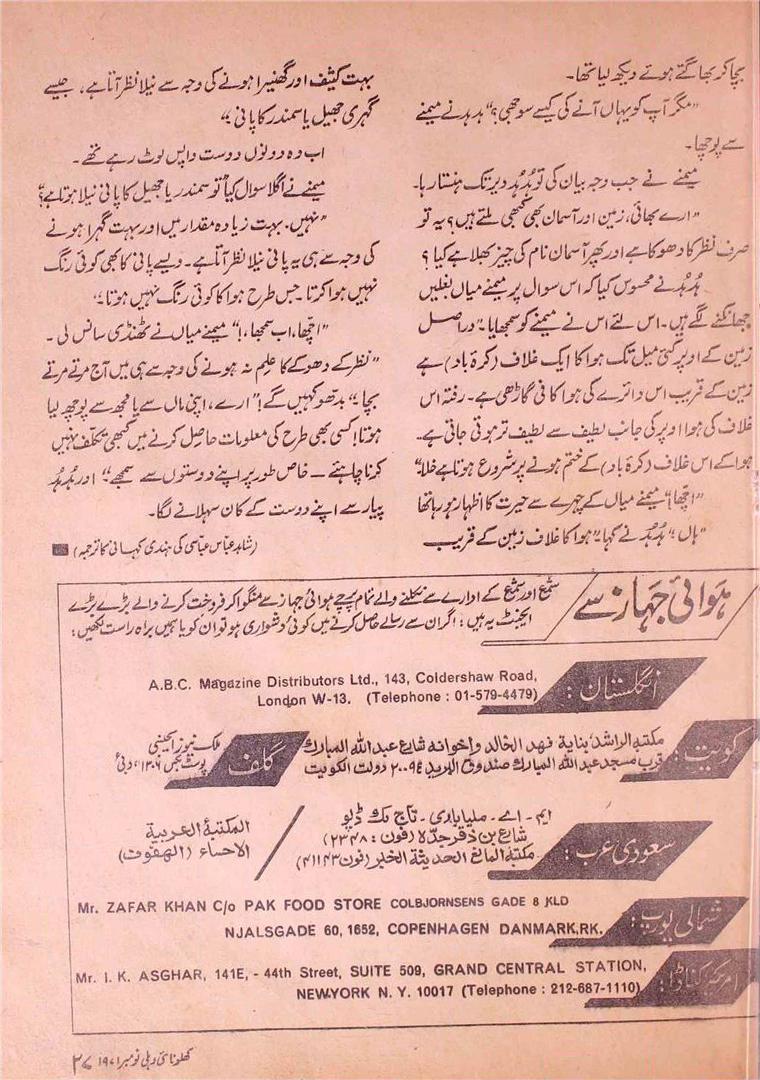 بچا کر بھاگتے ہوئے دیکھ لیا تھا۔
"مگر آپ کو یہاں آنے کی کیسے سوجھی؟" ہدہد نے میمنے
سے پوچھا۔
میمنے نے جب وجہ بیان کی تو ہُدہُد دیر تک ہنستا رہا۔
"ارے بھائی، زمین اور آسمان بھی کبھی ملتے ہیں؟ یہ تو
صرف نظر کا دھوکا ہے اور پھر آسمان نام کی چیز بھلا ہے کیا؟
ہُدہُد نے محسوس کیا کہ اس سوال پر میمنے میاں بغلیں
جھانکنے لگے ہیں۔ اس لئے اس نے میمنے کو سمجھایا۔ "دراصل
زمین کے اوپر کئی میل تک ہوا کا ایک غلاف (کرۂ باد) ہے
زمین کے قریب اس دائرے کی ہوا کافی گاڑھی ہے۔ رفتہ اس
غلاف کی ہوا اوپر کی جانب لطیف سے لطیف تر ہوتی جاتی ہے۔
ہوا کے اس غلاف (کرۂ باد) کے ختم ہونے پر شروع ہوتا ہے خلا"
"اچھا!" میمنے میاں کے چہرے سے حیرت کا اظہار ہو رہا تھا
"ہاں" ہُدہُد نے کہا۔ "ہوا کا غلاف زمین کے قریب
بہت کثیف اور گھنیرا ہونے کی وجہ سے نیلا نظر آتا ہے، جیسے
گہری جھیل یا سمندر کا پانی"
اب وہ دونوں دوست واپس لوٹ رہے تھے۔
میمنے نے اگلا سوال کیا "تو سمندر یا جھیل کا پانی نیلا ہوتا ہے؟"
"نہیں۔ بہت زیادہ مقدار میں اور بہت گہرا ہونے
کی وجہ سے ہی یہ پانی نیلا نظر آتا ہے۔ ویسے پانی کا بھی کوئی رنگ
نہیں ہوا کرتا۔ جس طرح ہوا کا کوئی رنگ نہیں ہوتا۔"
"اچھا، اب سمجھا!" میمنے میاں نے ٹھنڈی سانس لی۔
"نظر کے دھوکے کا علم نہ ہونے کی وجہ سے ہی میں آج مرتے مرتے
بچا" "بدھو کہیں گے! ارے، اپنی ماں سے یا مجھ سے پوچھ لیا
ہوتا! کسی بھی طرح کی معلومات حاصل کرنے میں کبھی تکلف نہیں
کرنا چاہئے ـــ خاص طور پر اپنے دوستوں سے سمجھے" اور ہُدہُد
پیار سے اپنے دوست کے کان سہلانے لگا۔
(شاہد عباس عباسی کی ہندی کہانی کا ترجمہ)
ہوائی جہاز سے
شمع اور شمع کے ادارے سے نکلنے والے تمام پرچے ہوائی جہاز سے منگوا کر فروخت کرنے والے بڑے بڑے
ایجنٹ یہ ہیں: اگر ان سے رسالے حاصل کرنے میں کوئی دشواری ہو تو ان کو یا ہمیں براہ راست لکھیں:
انگلستان:
A.B.C. Magazine Distributors Ltd., 143, Coldershaw Road,
London W-13. (Telephone : 01-579-4479)
کویت:
مکتبة الراشد بنایة فهد الخالد واخوانه شارع عبدالله المبارک
قرب مسجد عبدالله المبارک صندوق البرید ۲۰۰۹٤ دولت الکویت
گلف
ملک نیوز ایجنسی
پوسٹ بکس ۱۳۰۶، دبئی
سعودی عرب:
ایم۔ اے۔ ملیاباری۔ تاج بک ڈپو
شارع بن ذقر جدّہ (فون: ۲۳۴۸)
مکتبة المانع الحدیثة الخبر (فون ۴۱۱۴۳)
المکتبة العربیة
الاحساء (الهفوف)
شمالی یورپ:
Mr. ZAFAR KHAN C/o PAK FOOD STORE COLBJORNSENS GADE 8 KLD
NJALSGADE 60, 1652, COPENHAGEN DANMARK,RK.
امریکہ کناڈا:
Mr. I. K. ASGHAR, 141E, - 44th Street, SUITE 509, GRAND CENTRAL STATION,
NEWYORK N. Y. 10017 (Telephone : 212-687-1110)
کھلونا نئی دہلی نومبر ۱۹۷۱ ۳۷